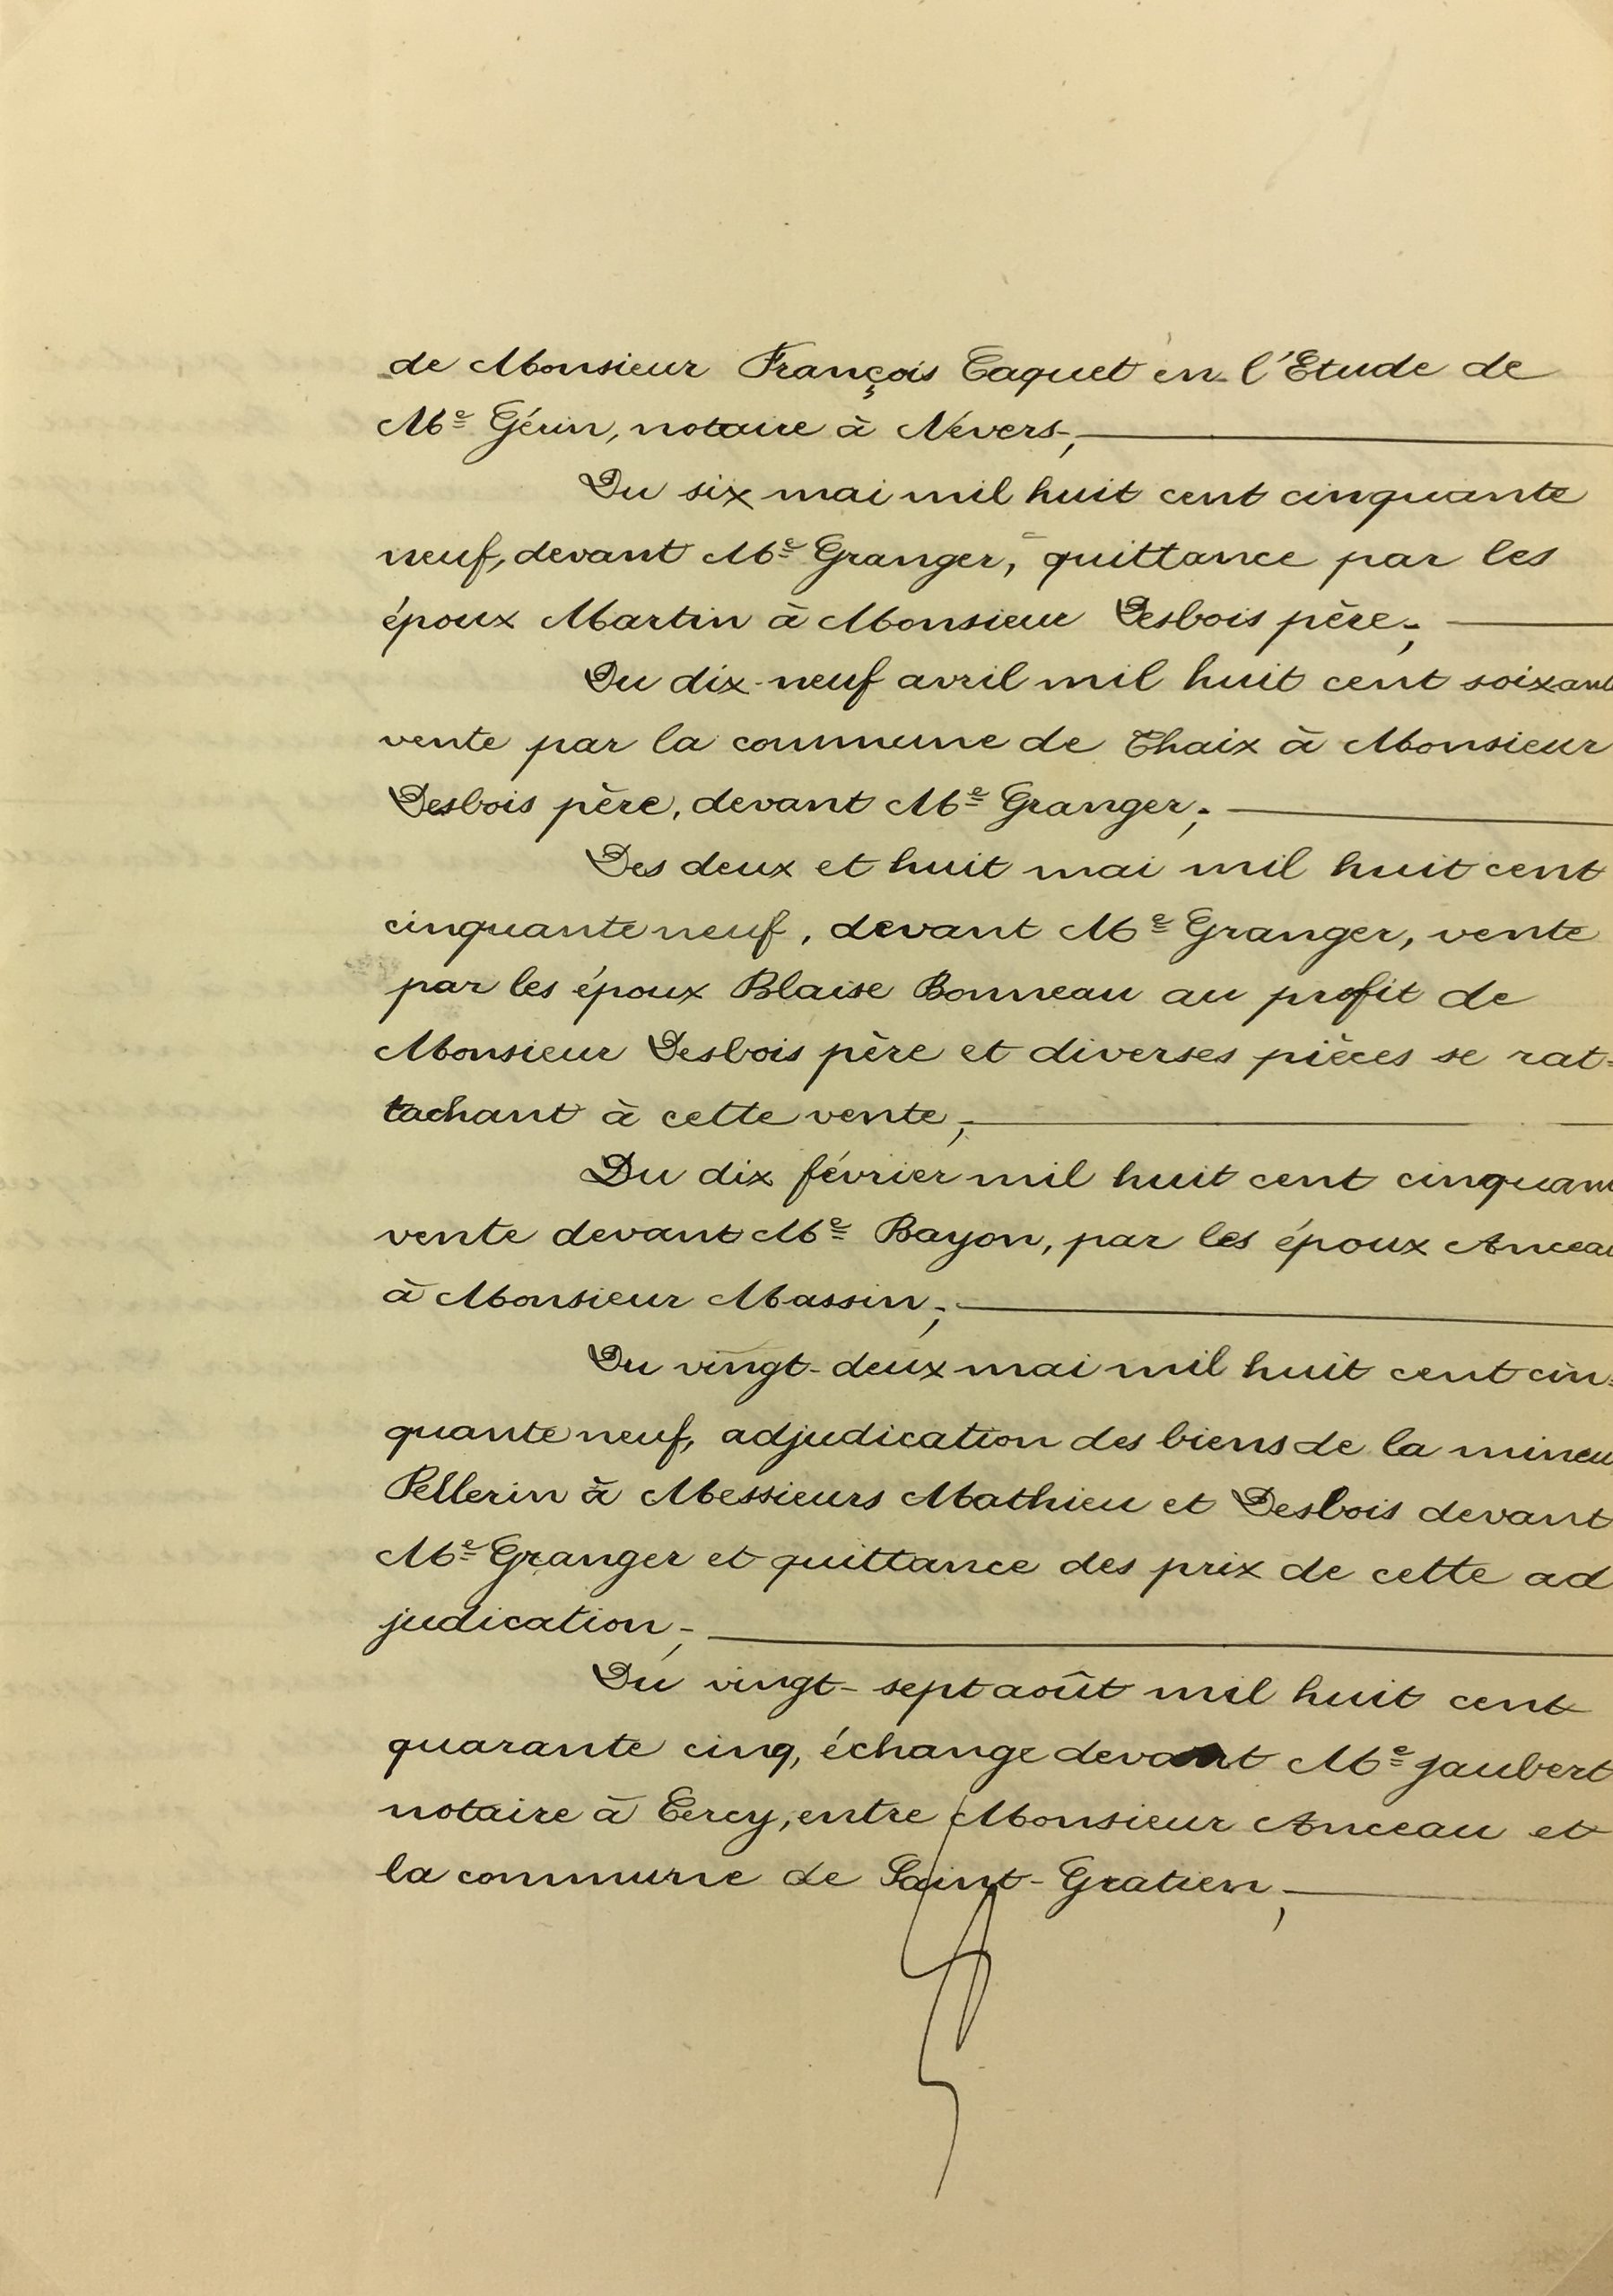 de Monsieur François Taquet en l'Etude de
Me Gérin, notaire à Nevers;
Du six mai mil huit cent cinquante
neuf, devant Me Granger, quittance par les
époux Martin à Monsieur Desbois père;
Du dix-neuf avril mil huit cent soixant
vente par la commune de Thaix à Monsieur
Desbois père, devant Me Granger;
Des deux et huit mai mil huit cent
cinquante neuf, devant Me Granger, vente
par les époux Blaise Bonneau au profit de
Monsieur Desbois père et diverses pièces se rat=
tachant à cette vente;
Du dix février mil huit cent cinquan
vente devant Me Bayon, par les époux Anceau
à Monsieur Massin;
Du vingt-deux mai mil huit cent cin=
quante neuf, adjudication des biens de la mineu
Pellerin à Messieurs Mathieu et Desbois devant
Me Granger et quittance des prix de cette ad
judication;
Du vingt-sept août mil huit cent
quarante cinq, échange devant Me Jaubert
notaire à Cercy, entre Monsieur Anceau et
la commune de Saint-Gratien;